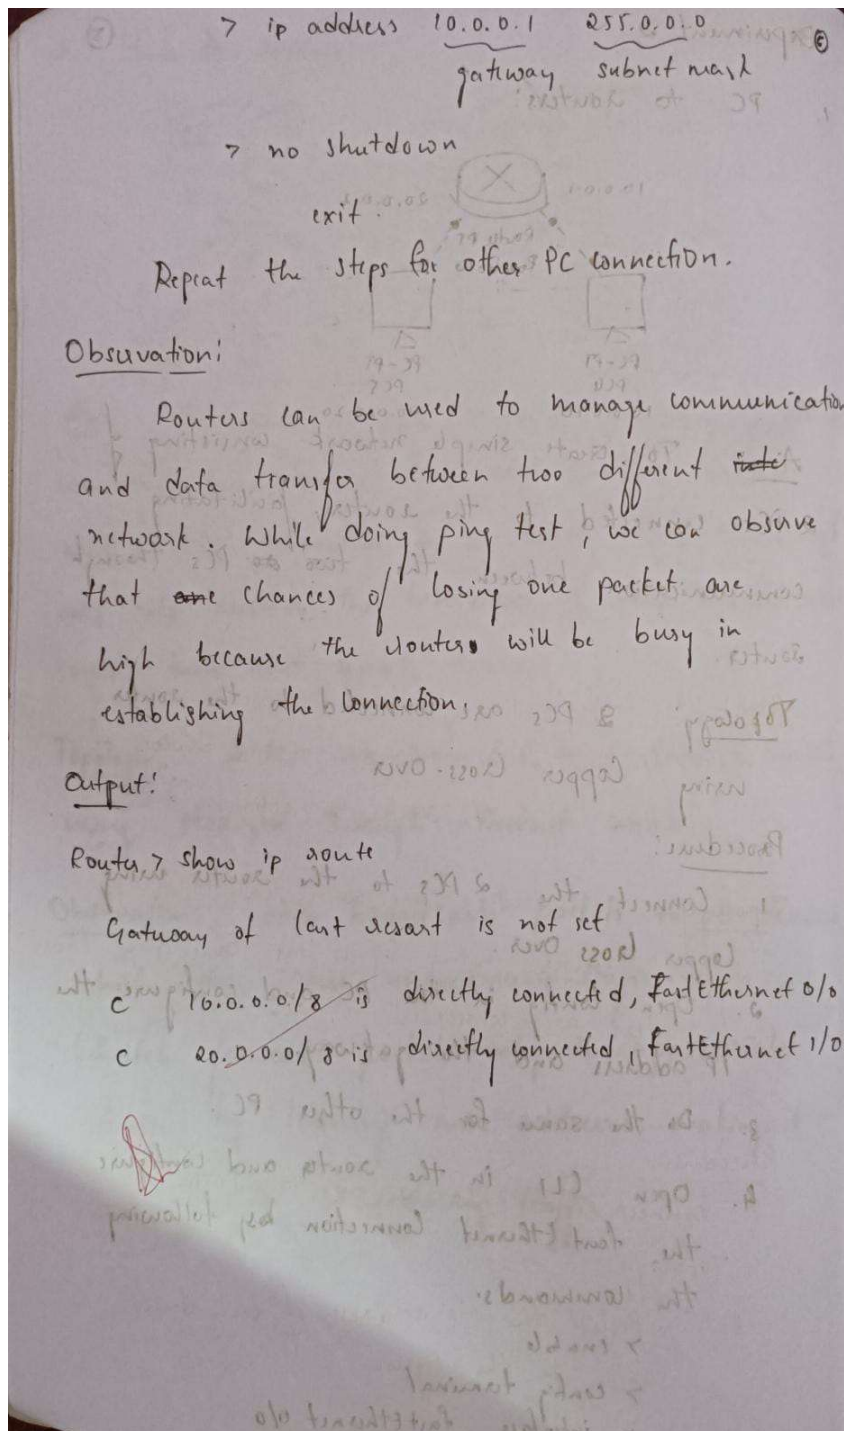 > ip address 10.0.0.1 255.0.0.0
gateway subnet mask
> no shutdown
exit.
Repeat the steps for other PC connection.
Observation:
Routers can be used to manage communication
and data transfer between two different
network. While doing ping test, we can observe
that chances of losing one packet are
high because the router will be busy in
establishing the connection.
Output:
Router > show ip route
Gateway of last resort is not set
C 10.0.0.0/8 is directly connected, FastEthernet 0/0
C 20.0.0.0/8 is directly connected, FastEthernet 1/0